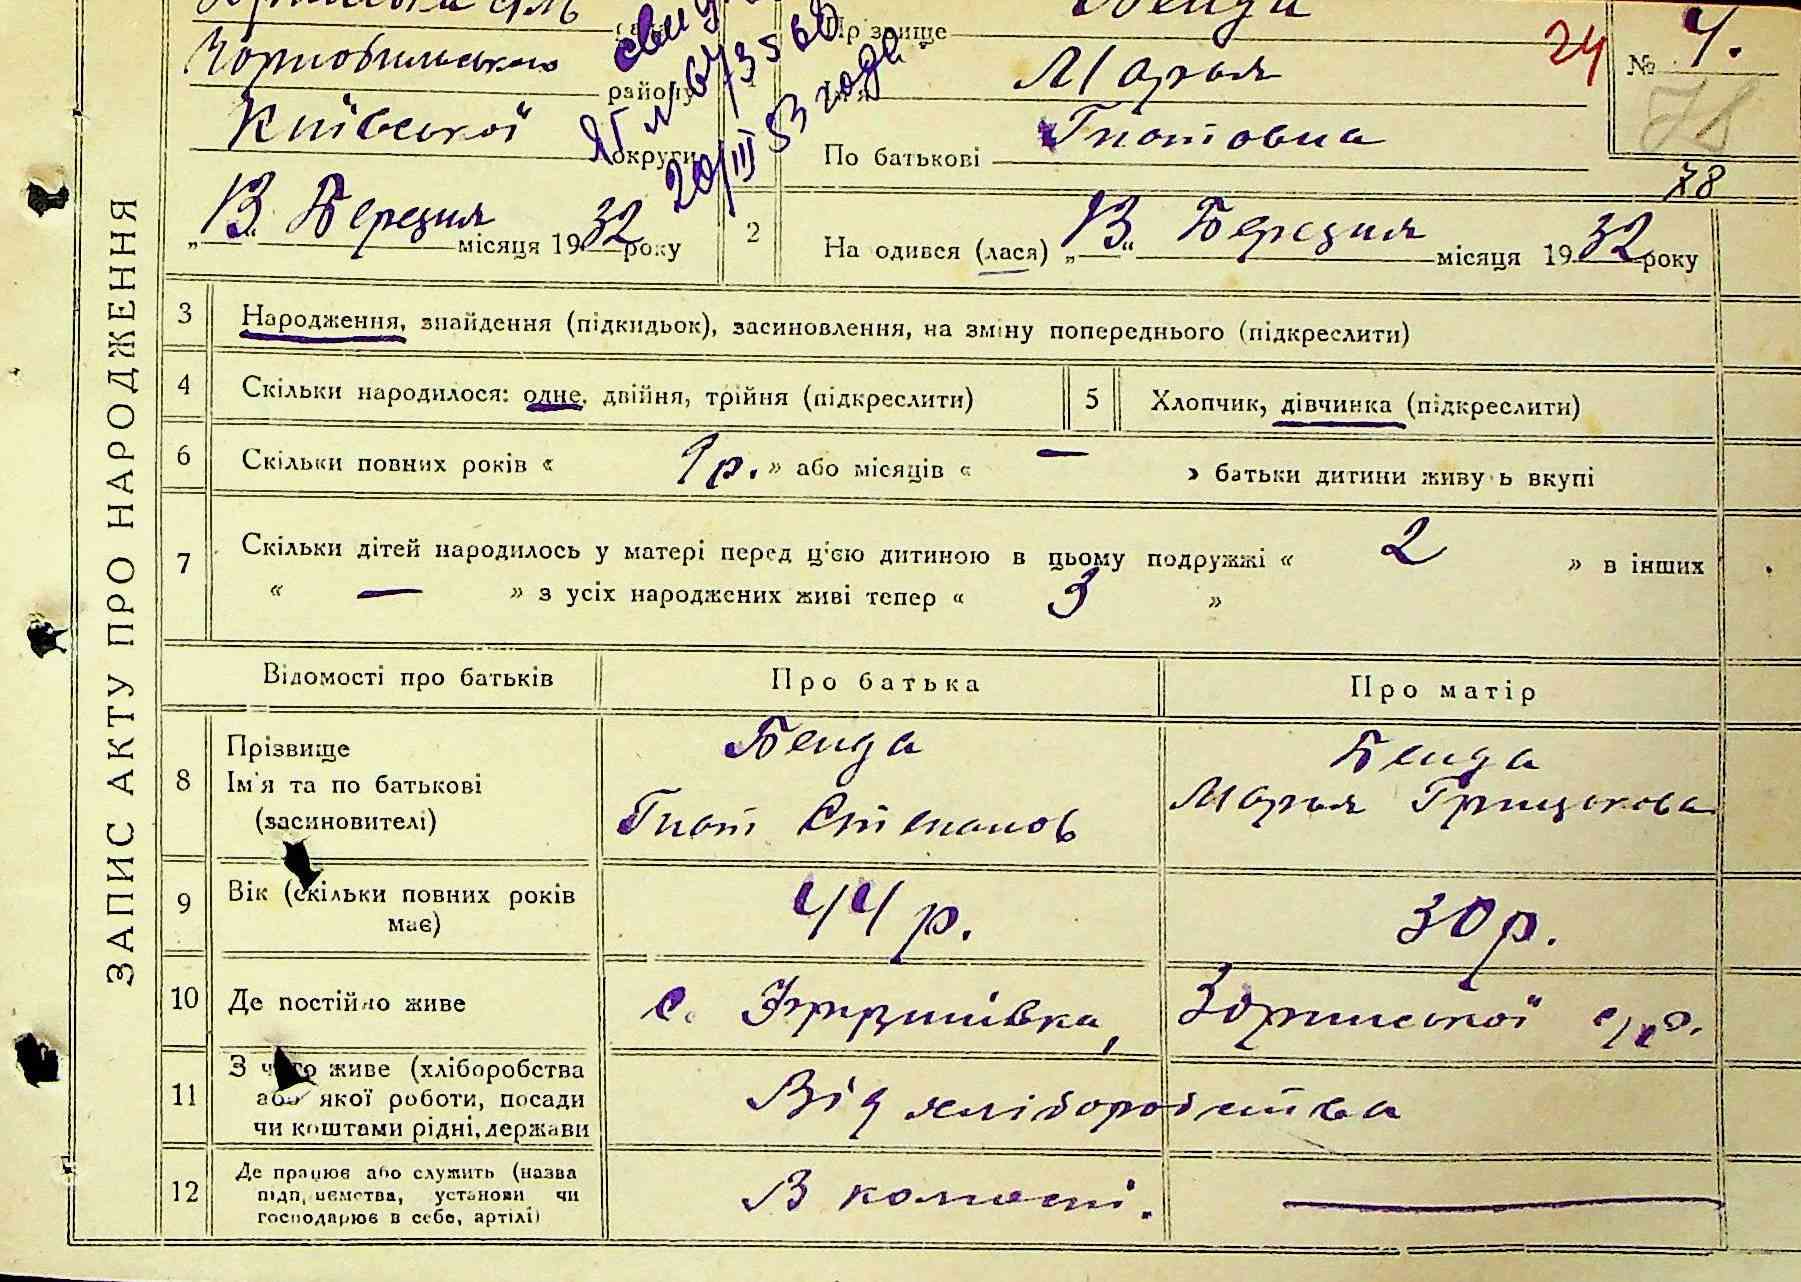 Прізвище Бенда
Чорнобильського району
Ім'я Марья
Київської округи
По батькові Гнатовна
№ 4.
24
78
78
ЯБ № 67/3566
20/III 53 года
„13.“ Березня місяця 1932 року
2 На одився (лася) „13“ Березня місяця 1932 року
ЗАПИС АКТУ ПРО НАРОДЖЕННЯ
3 Народження, знайдення (підкидьок), засиновлення, на зміну попереднього (підкреслити)
4 Скільки народилося: одне, двійня, трійня (підкреслити) 5 Хлопчик, дівчинка (підкреслити)
6 Скільки повних років « 9 р. » або місяців « — » батьки дитини живу ь вкупі
7 Скільки дітей народилось у матері перед ц'єю дитиною в цьому подружжі « 2 » в інших
« — » з усіх народжених живі тепер « 3 »
Відомості про батьків Про батька Про матір
8 Прізвище Бенда Бенда
Ім'я та по батькові Гнат Степанов Марья Грицькова
(засиновителі)
9 Вік (скільки повних років має) 44 р. 30 р.
10 Де постійно живе с. Зоринської с/р.
11 З чого живе (хліборобства
або якої роботи, посади
чи коштами рідні, держави Від хліборобства
12 Де працює або служить (назва
підприємства, установи чи
господарює в себе, артілі) В комені. —